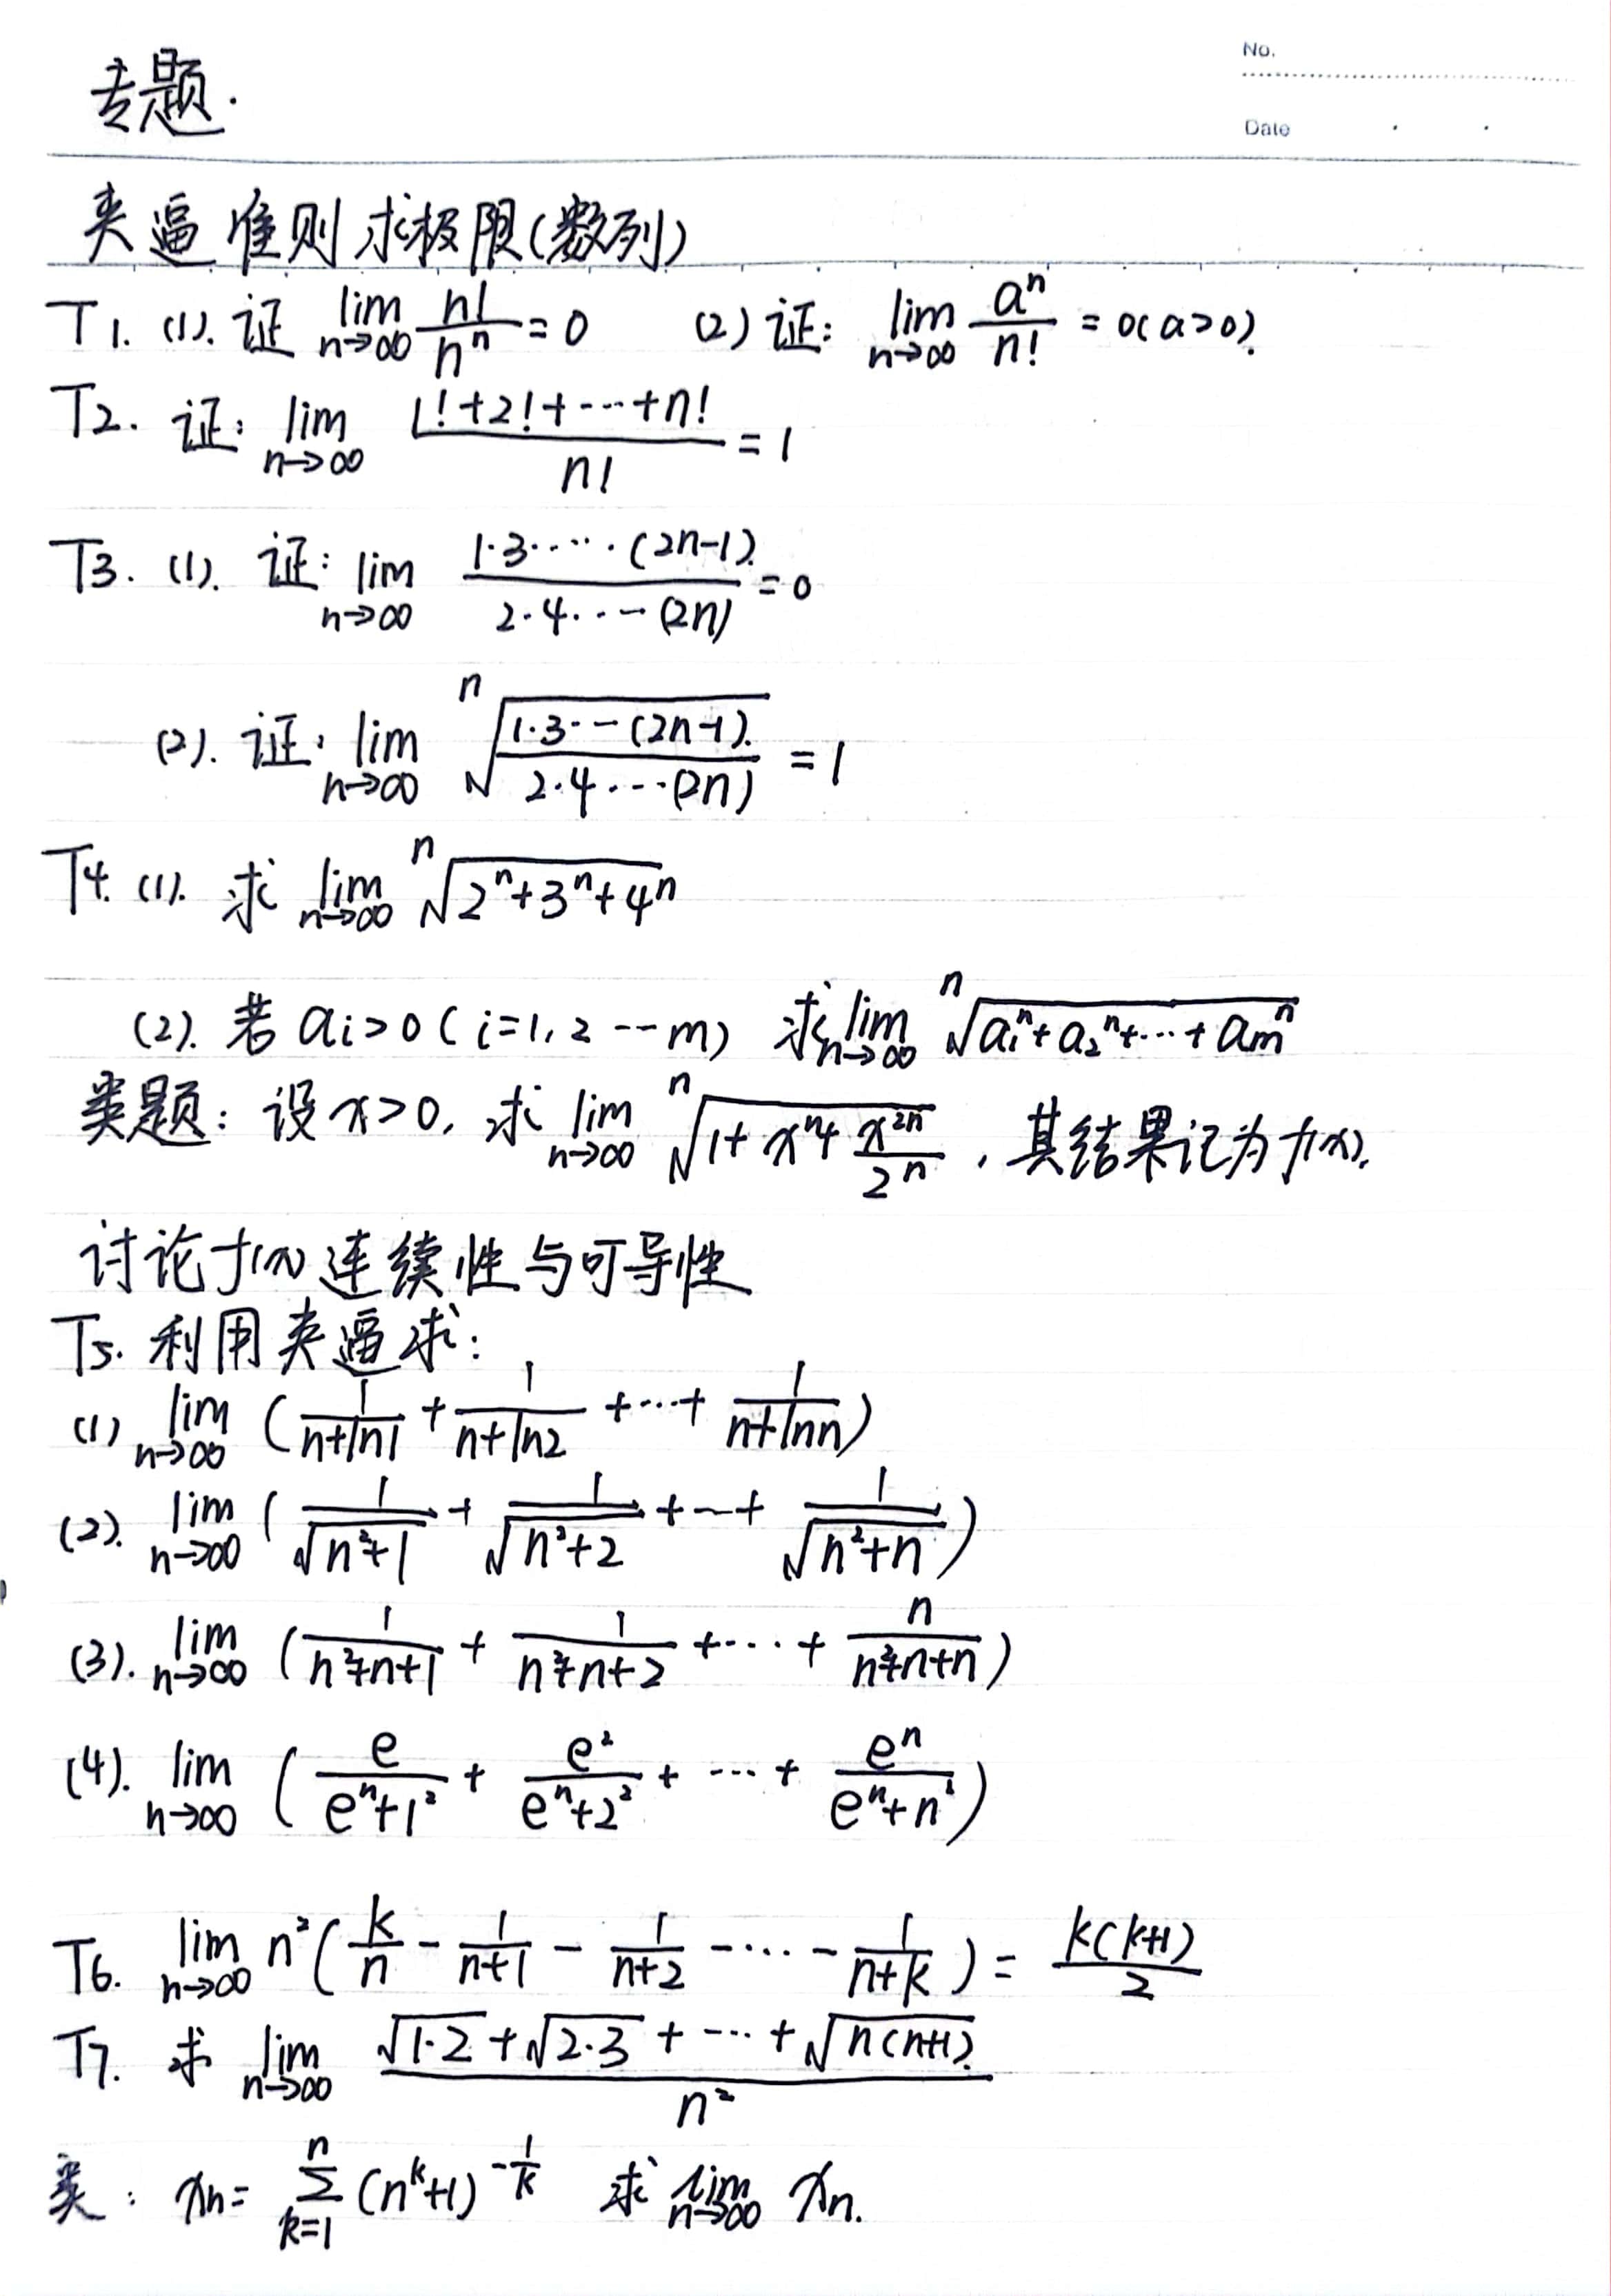 No.
专题.
Date
夹逼准则求极限(数列)
T1. (1). 证 lim_{n→∞} n!/n^n = 0 (2) 证: lim_{n→∞} a^n/n! = 0(a>0).
T2. 证: lim_{n→∞} (1!+2!+…+n!)/n! = 1
T3. (1). 证: lim_{n→∞} (1·3·…·(2n-1))/(2·4·…(2n)) = 0
(2). 证: lim_{n→∞} ⁿ√((1·3…(2n-1))/(2·4·…(2n))) = 1
T4. (1). 求 lim_{n→∞} ⁿ√(2^n+3^n+4^n)
(2). 若 a_i>0 (i=1,2…m) 求 lim_{n→∞} ⁿ√(a_1^n+a_2^n+…+a_m^n)
类题: 设x>0, 求 lim_{n→∞} ⁿ√(1+x^n+x^{2n}/2^n), 其结果记为f(x).
讨论f(x)连续性与可导性
T5. 利用夹逼求:
(1) lim_{n→∞} (1/(n+ln1) + 1/(n+ln2) +…+ 1/(n+lnn))
(2). lim_{n→∞} (1/√(n²+1) + 1/√(n²+2) +…+ 1/√(n²+n))
(3). lim_{n→∞} (1/(n²+n+1) + 1/(n²+n+2) +…+ n/(n²+n+n))
(4). lim_{n→∞} (e/(e^n+1²) + e²/(e^n+2²) + … + e^n/(e^n+n²))
T6. lim_{n→∞} n²(k/n - 1/(n+1) - 1/(n+2) -…- 1/(n+k)) = k(k+1)/2
T7. 求 lim_{n→∞} (√(1·2)+√(2·3)+…+√(n(n+1)))/n²
类: x_n= Σ_{k=1}^{n} (n^k+1)^{-1/k} 求 lim_{n→∞} x_n.